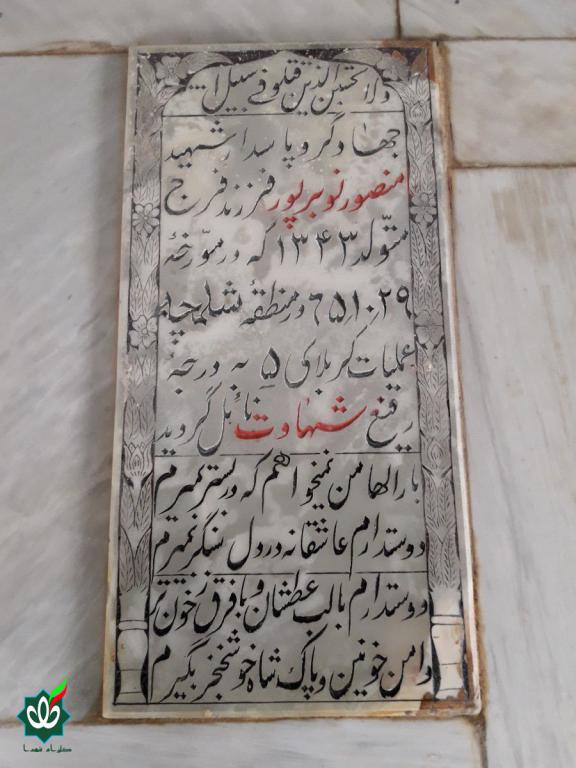 ولا تحسبن الذین قتلو فے سبیل ا
جهادگر و پاسدار شهید
منصور نوبرپور فرزند فرج
متولد ۱۳۴۳ که در مورخهٔ
۶۵٫۱۰٫۲۹ در منطقهٔ شلمچه
عملیات کربلای ۵ به درجهٔ
رفیع شهادت نائل گردید
بارالها من نمیخواهم که در بستر بمیرم
دوستدارم عاشقانه در دل سنگر بمیرم
دوستدارم با لب عطشان و با فرق ز خون تر
دامن خونین و پاک شاه خوشخنجر بگیرم
گلزار شهدا